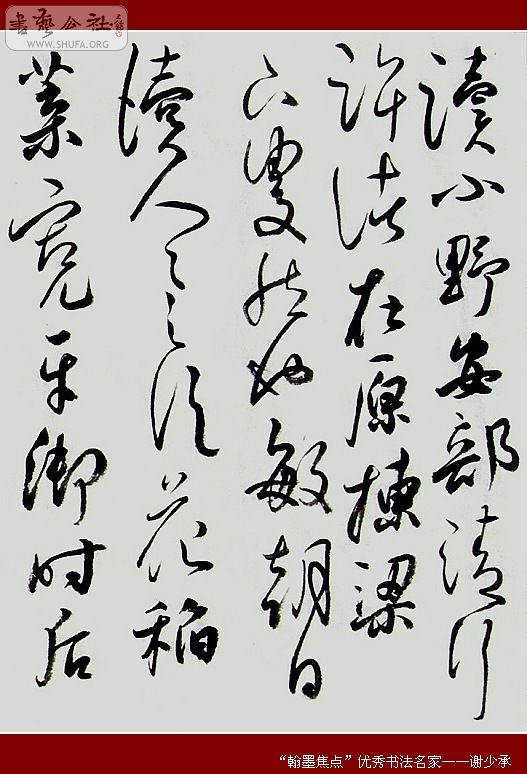 書藝公社
WWW.SHUFA.ORG
读小野安部清行
许法在原栋梁
六叟然地敏朝日
读人之之后花稻
业宽平御时后
“翰墨焦点”优秀书法名家——谢少承